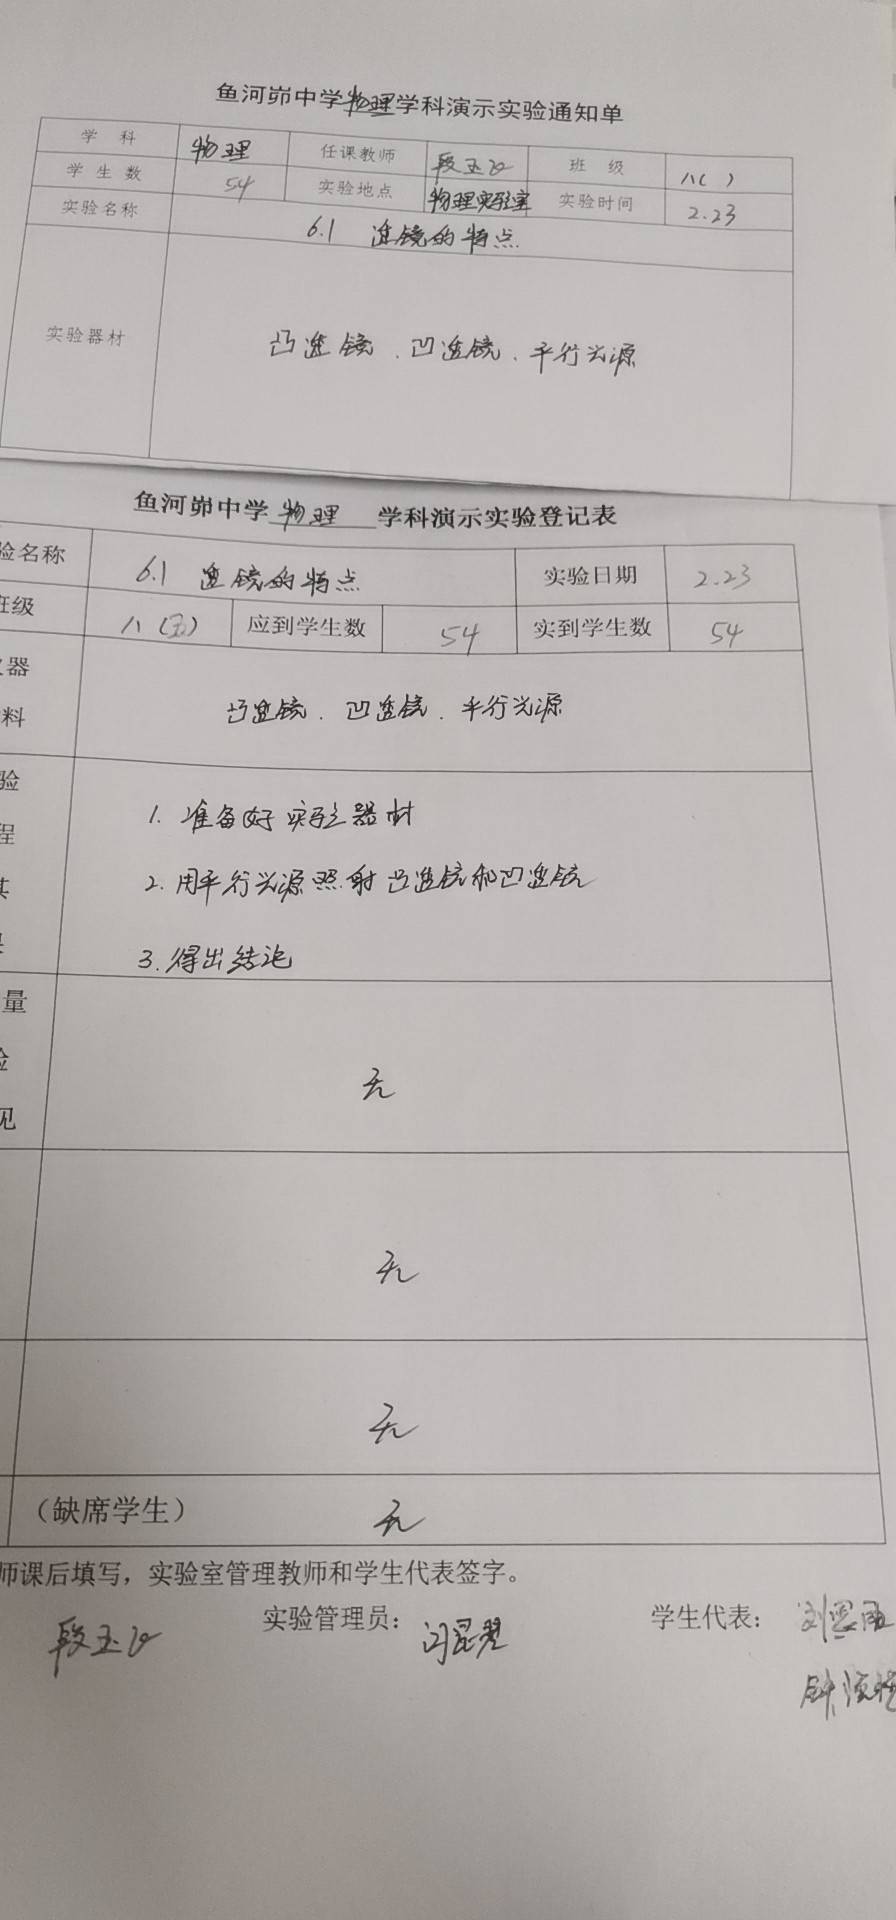 鱼河峁中学物理学科演示实验通知单
学 科 物理 任课教师 段玉 班 级 八( )
学 生 数 54 实验地点 物理实验室 实验时间 2.23
实验名称 6.1 透镜的特点
实验器材 凸透镜、凹透镜、平行光源
鱼河峁中学 物理 学科演示实验登记表
验名称 6.1 透镜的特点 实验日期 2.23
班级 八(五) 应到学生数 54 实到学生数 54
器
料
凸透镜、凹透镜、平行光源
验
程
其
1. 准备好实验器材
2. 用平行光源照射凸透镜和凹透镜
3. 得出结论
量
验
见
无
无
无
(缺席学生) 无
师课后填写，实验室管理教师和学生代表签字。
段玉 实验管理员： 学生代表： 刘思雨